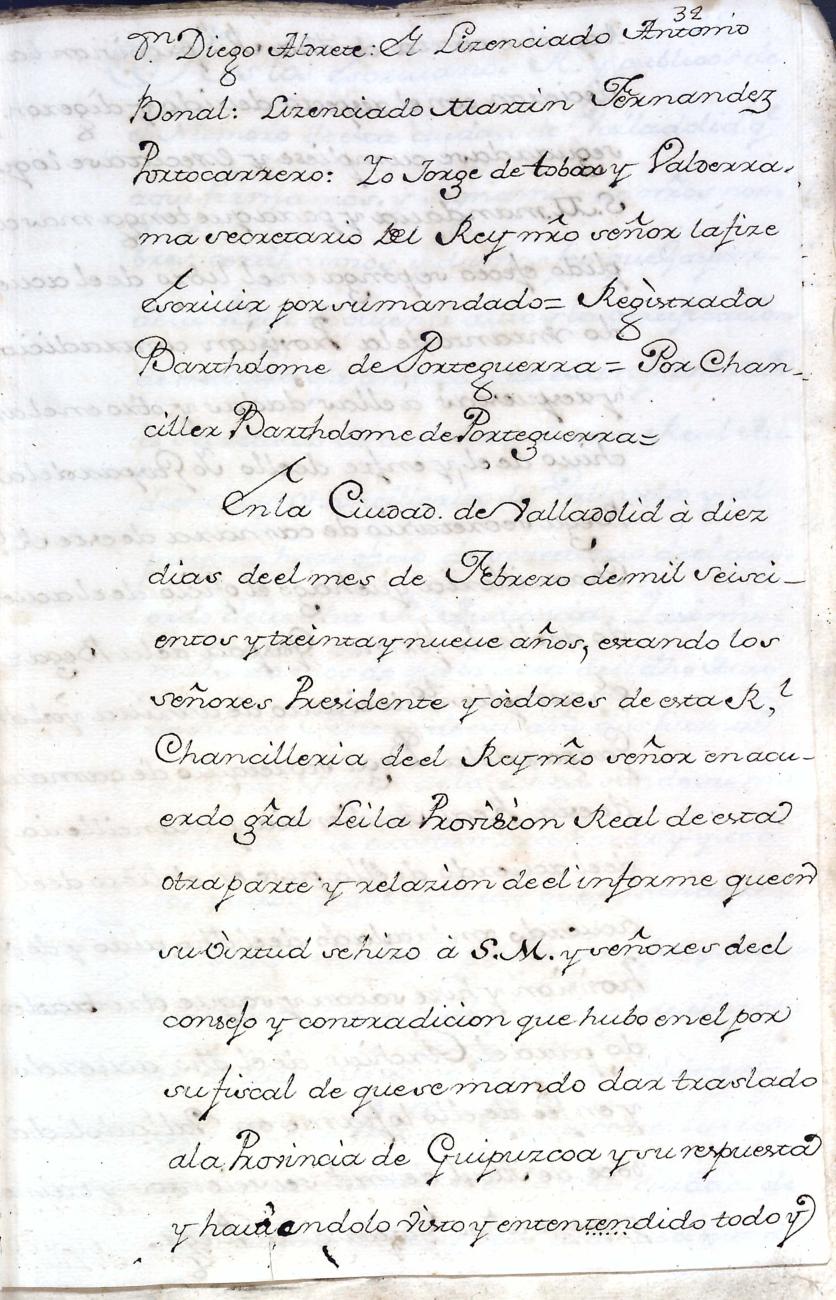 32
Dn. Diego Alrrete: El Lizenciado Antonio
Bonal: Lizenciado Martin Fernandez
Portocarrero: Yo Jorge de tobar y Valderra-
ma secretario del Rey nrõ señor la fize
escriuir por su mandado= Registrada
Bartholome de Porteguerra= Por Chan-
ciller Bartholome de Porteguerra=
En la Ciudad. de Valladolid à diez
dias de el mes de Febrero de mil seisci-
entos y treinta y nueue años, estando los
señores Presidente y oidores de esta R,l
Chancilleria de el Rey nrõ señor en acu-
erdo grãl Lei la Provision Real de esta
otra parte y relazion de el informe que en
su virtud se hizo à S.M. y señores de el
consejo y contradicion que hubo en el por
su fiscal de que se mando dar traslado
a la Provincia de Guipuzcoa y su respuesta
y hauiendolo visto y ententendido todo y